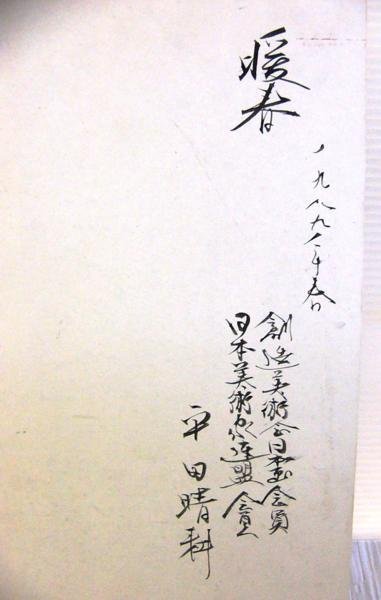 暖春
一九八九年春
創造美術会日本画会員
日本美術家連盟会員
平田晴耕